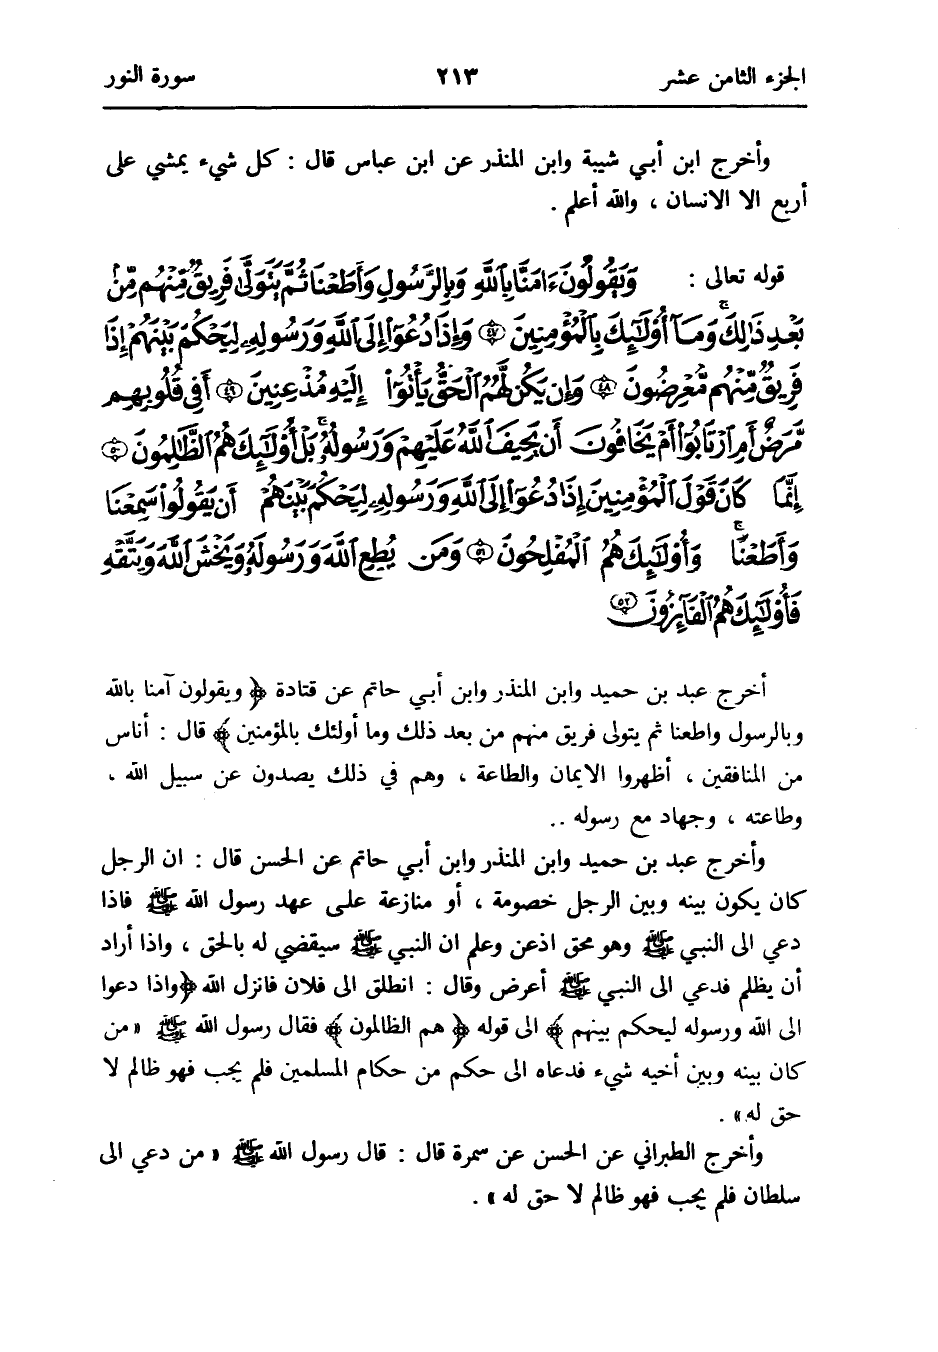 الجزء الثامن عشر ٢١٣ سورة النور
وأخرج ابن أبي شيبة وابن المنذر عن ابن عباس قال : كل شيء يمشي على
أربع الا الانسان ، والله أعلم .
قوله تعالى : وَيَقُولُونَ ءَامَنَّا بِٱللَّهِ وَبِٱلرَّسُولِ وَأَطَعْنَا ثُمَّ يَتَوَلَّىٰ فَرِيقٌ مِّنْهُم مِّنۢ
بَعْدِ ذَٰلِكَ ۚ وَمَآ أُو۟لَٰٓئِكَ بِٱلْمُؤْمِنِينَ ٤٧ وَإِذَا دُعُوٓا۟ إِلَى ٱللَّهِ وَرَسُولِهِۦ لِيَحْكُمَ بَيْنَهُمْ إِذَا
فَرِيقٌ مِّنْهُم مُّعْرِضُونَ ٤٨ وَإِن يَكُن لَّهُمُ ٱلْحَقُّ يَأْتُوٓا۟ إِلَيْهِ مُذْعِنِينَ ٤٩ أَفِى قُلُوبِهِم
مَّرَضٌ أَمِ ٱرْتَابُوٓا۟ أَمْ يَخَافُونَ أَن يَحِيفَ ٱللَّهُ عَلَيْهِمْ وَرَسُولُهُۥ ۚ بَلْ أُو۟لَٰٓئِكَ هُمُ ٱلظَّٰلِمُونَ ٥٠
إِنَّمَا كَانَ قَوْلَ ٱلْمُؤْمِنِينَ إِذَا دُعُوٓا۟ إِلَى ٱللَّهِ وَرَسُولِهِۦ لِيَحْكُمَ بَيْنَهُمْ أَن يَقُولُوا۟ سَمِعْنَا
وَأَطَعْنَا ۚ وَأُو۟لَٰٓئِكَ هُمُ ٱلْمُفْلِحُونَ ٥١ وَمَن يُطِعِ ٱللَّهَ وَرَسُولَهُۥ وَيَخْشَ ٱللَّهَ وَيَتَّقْهِ
فَأُو۟لَٰٓئِكَ هُمُ ٱلْفَآئِزُونَ ٥٢
أخرج عبد بن حميد وابن المنذر وابن أبي حاتم عن قتادة ﴿ ويقولون آمنا بالله
وبالرسول واطعنا ثم يتولى فريق منهم من بعد ذلك وما أولئك بالمؤمنين ﴾ قال : أناس
من المنافقين ، أظهروا الايمان والطاعة ، وهم في ذلك يصدون عن سبيل الله ،
وطاعته ، وجهاد مع رسوله ..
وأخرج عبد بن حميد وابن المنذر وابن أبي حاتم عن الحسن قال : ان الرجل
كان يكون بينه وبين الرجل خصومة ، أو منازعة على عهد رسول الله ﷺ فاذا
دعي الى النبي ﷺ وهو محق اذعن وعلم ان النبي ﷺ سيقضي له بالحق ، واذا أراد
أن يظلم فدعي الى النبي ﷺ أعرض وقال : انطلق الى فلان فانزل الله ﴿واذا دعوا
الى الله ورسوله ليحكم بينهم ﴾ الى قوله ﴿ هم الظالمون ﴾ فقال رسول الله ﷺ « من
كان بينه وبين أخيه شيء فدعاه الى حكم من حكام المسلمين فلم يجب فهو ظالم لا
حق له» .
وأخرج الطبراني عن الحسن عن سمرة قال : قال رسول الله ﷺ « من دعي الى
سلطان فلم يجب فهو ظالم لا حق له » .